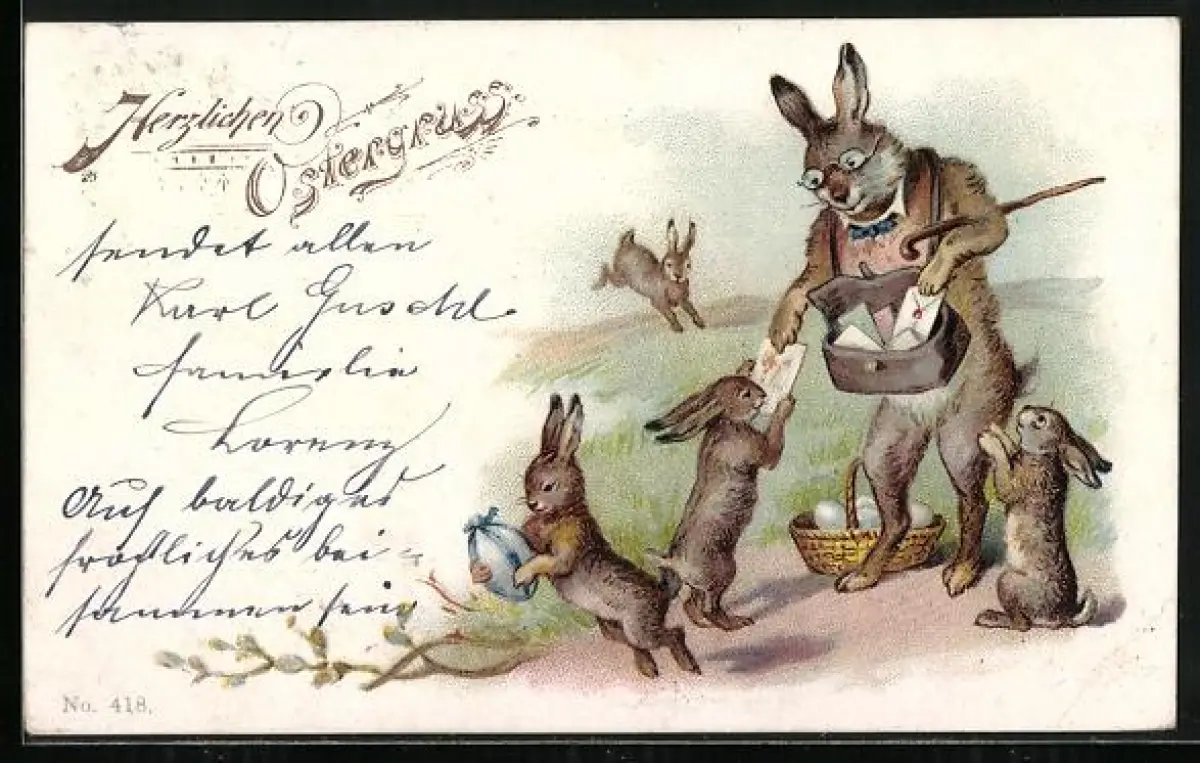 Herzlichen
Ostergruss
sendet allen
Karl
Familie
Lorenz
Auf baldiges
fröhliches bei-
sammen sein
No. 418.